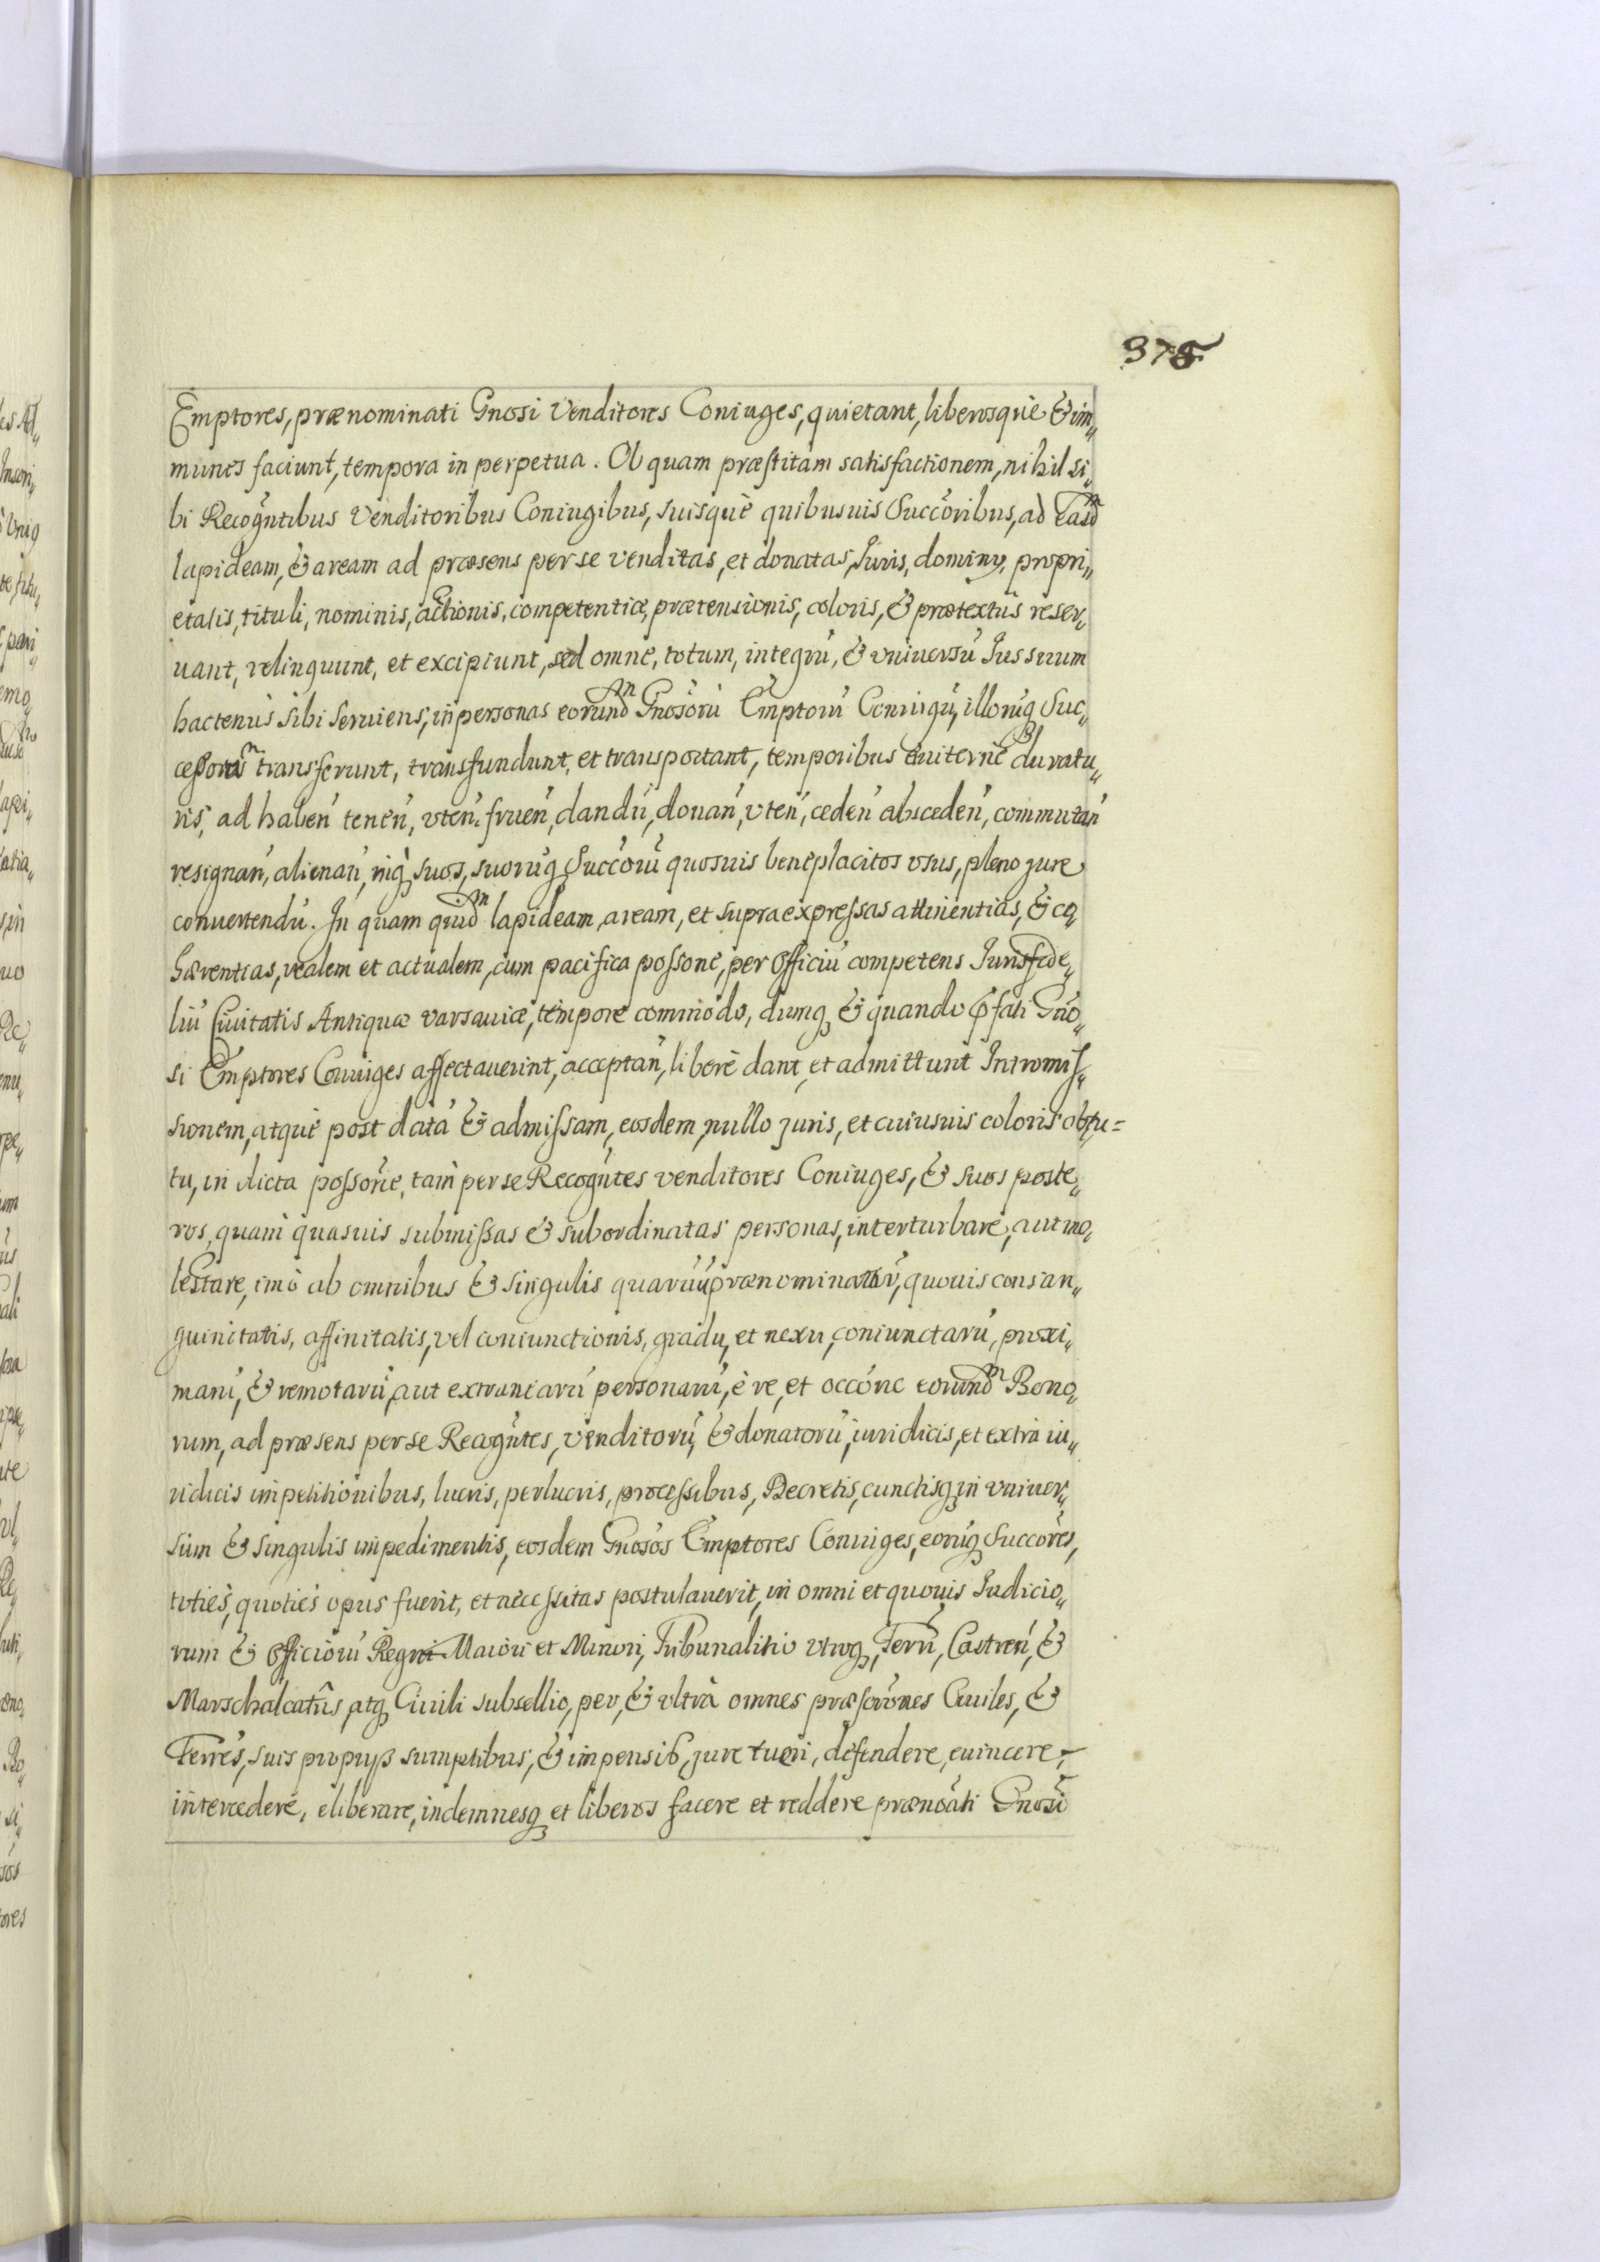 375
Emptores, prænominati Gnosi Venditores Coniuges, quietant, liberosquè & im„
munes faciunt, tempora in perpetua. Ob quam præstitam satisfactionem, nihil si„
bi Recogñtibus Venditoribus Coniugibus, suisquè quibusuis Succõribus, ad easd̃m
lapideam, & aream ad præsens per se venditas, et donatas, Iuris, dominy, propri„
etatis, tituli, nominis, actionis, competentiæ, prætensionis, coloris, & prætextûs reser„
uant, relinquunt, et excipiunt, sed omne, totum, integrũ, & vniuersũ Ius suum
hactenùs sibi seruiens, in personas eorund̃m Gnosorũ Emptorũ Coniugũ, illorũq Suc„
cessorũ transferunt, transfundunt, et transportant, temporibus æuiternè duratu„
ris, ad habeñ teneñ, vteñ. frueñ, dandũ, donañ, vteñ, cedeñ absceðeñ, commutañ
resignañ, alienañ, inq suos, suorũq Succorũ quosuis beneplacitos vsus, pleno jure
conuertendũ. In quam quid̃m lapideam, aream, et supra expressas attinentias, & co„
hærentias, realem et actualem, cum pacifica possone, per officiũ competens Iurisfide„
liũ Ciuitatis Antiquæ varsauiæ, tempore commodo, dumq & quando pfati Gño„
si Emptores Coniuges affectauerint, acceptañ, liberè dant, et admittunt Intromis„
sionem, atquè post datã & admissam, eosdem, nullo juris, et cuiusuis coloris obtu=
tu, in dicta possone, tam per se Recogñtes venditores Coniuges, & suos poste„
ros, quam quasuis submissas & subordinatas personas, interturbare, aut mo„
lestare, imò ab omnibus & singulis quarũuis prænominatarũ, quouis consan„
guinitatis, affinitatis, vel coniunctionis, gradu, et nexu, coniunctarũ, proxi„
marũ, & remotarũ, aut extranearũ personarũ, è re, et occõne eorund̃m Bono„
rum, ad præsens per se Recogñtes, venditorũ, & donatorũ, iuridicis, et extra iu„
ridicis impetitionibus, lucris, perlucris, processibus, Decretis, cunctisq in vniuer„
sum & singulis impedimentis, eosdem Gnosos Emptores Coniuges, eorũq Succõres,
toties, quoties opus fuerit, et necessitas postulauerit, in omni et quouis Iudicio„
rum & officiorũ Regni Maiori et Minori, Tribunalitio vtroq, Terrĩ, Castreñ, &
Marschalcatûs, atq Ciuili subsellio, per, & vltrà omnes præscrõnes Ciuiles, &
Terres, suis proprijs sumptibus, & impensis, jure tueri, defendere, euincere,
intercedere, eliberare, indemnesq et liberos facere et reddere prænõati Gnosi